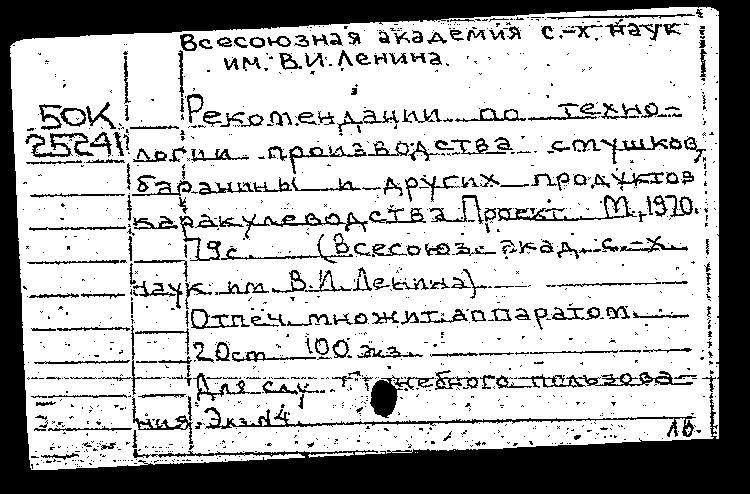 Всесоюзная академия с.-х. наук
им. В.И. Ленина.
50К
25241
Рекомендации по техно-
логии производства смушков,
баранины и других продуктов
каракулеводства. Проект. М., 1970.
79с. (Всесоюз. акад. с.-х.
наук им. В.И. Ленина)
Отпеч. множит. аппаратом.
20см 100 экз.
Для слу жебного пользова-
ния. Экз. №4.